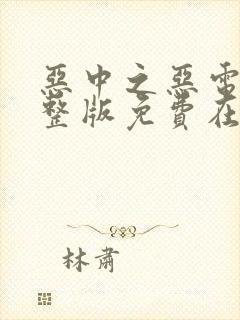 恶中之恶电
整版免费在
林肃